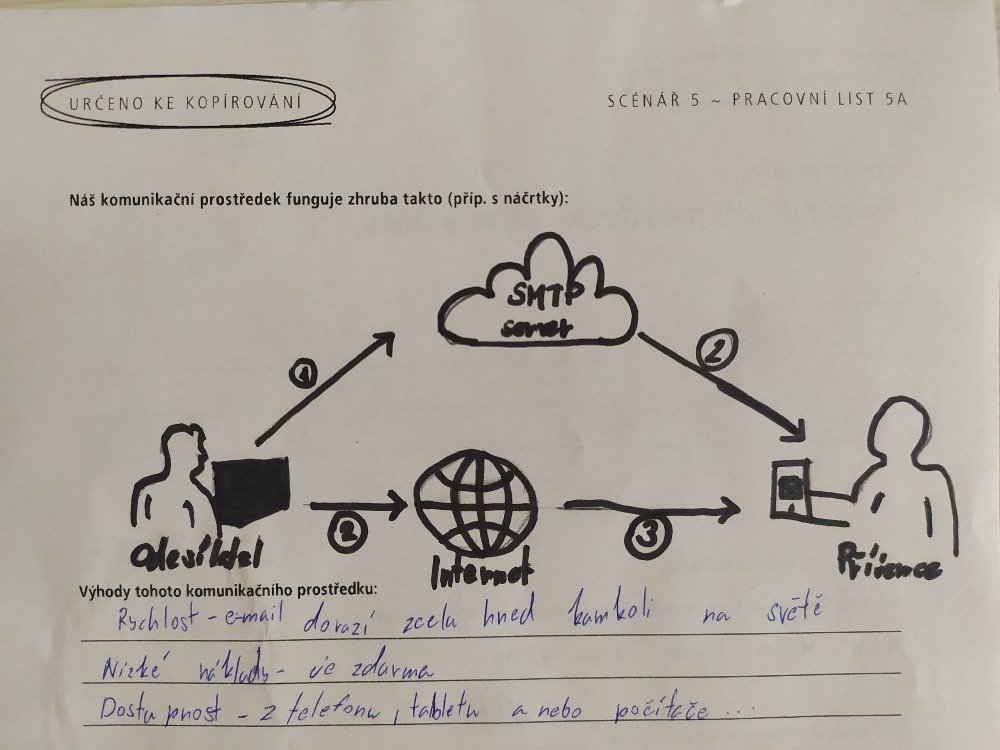 URČENO KE KOPÍROVÁNÍ
SCÉNÁŘ 5 ~ PRACOVNÍ LIST 5A
Náš komunikační prostředek funguje zhruba takto (příp. s náčrtky):
SMTP
server
1
2
2
3
Odesílatel
Internet
Příjemce
Výhody tohoto komunikačního prostředku:
Rychlost - e-mail dorazí zcela hned kamkoli na světě
Nízké náklady - je zdarma
Dostupnost - z telefonu, tabletu a nebo počítače ...